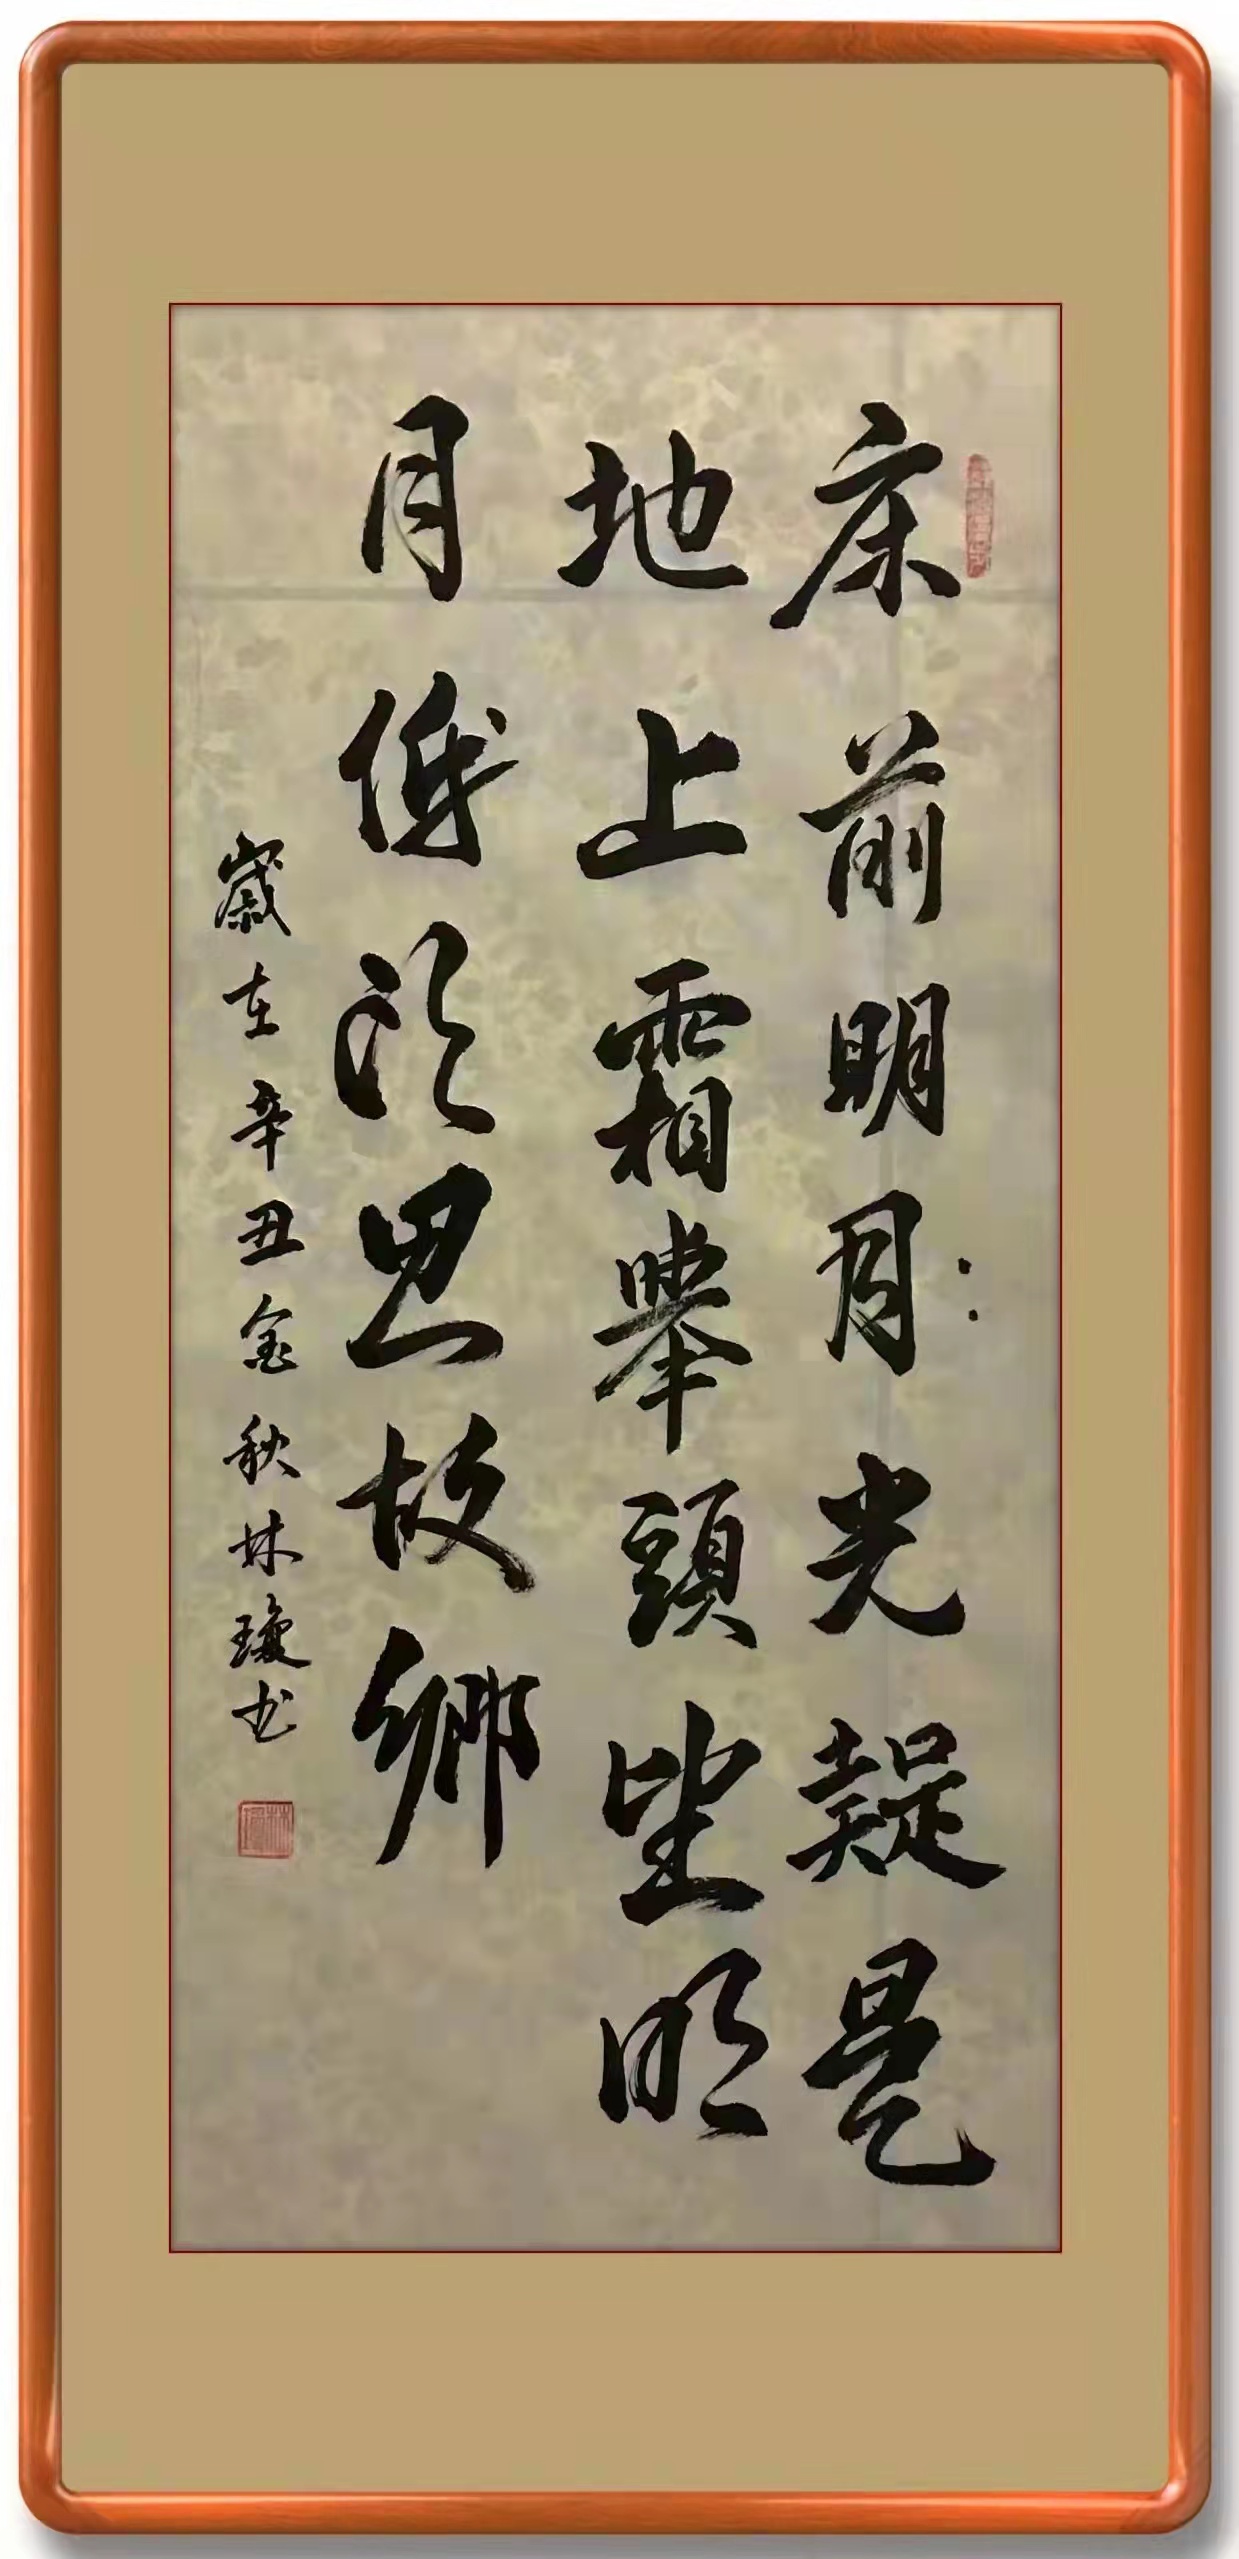 床前明月光疑是
地上霜舉頭望明
月低頭思故鄉
歲在辛丑金秋林瓊书